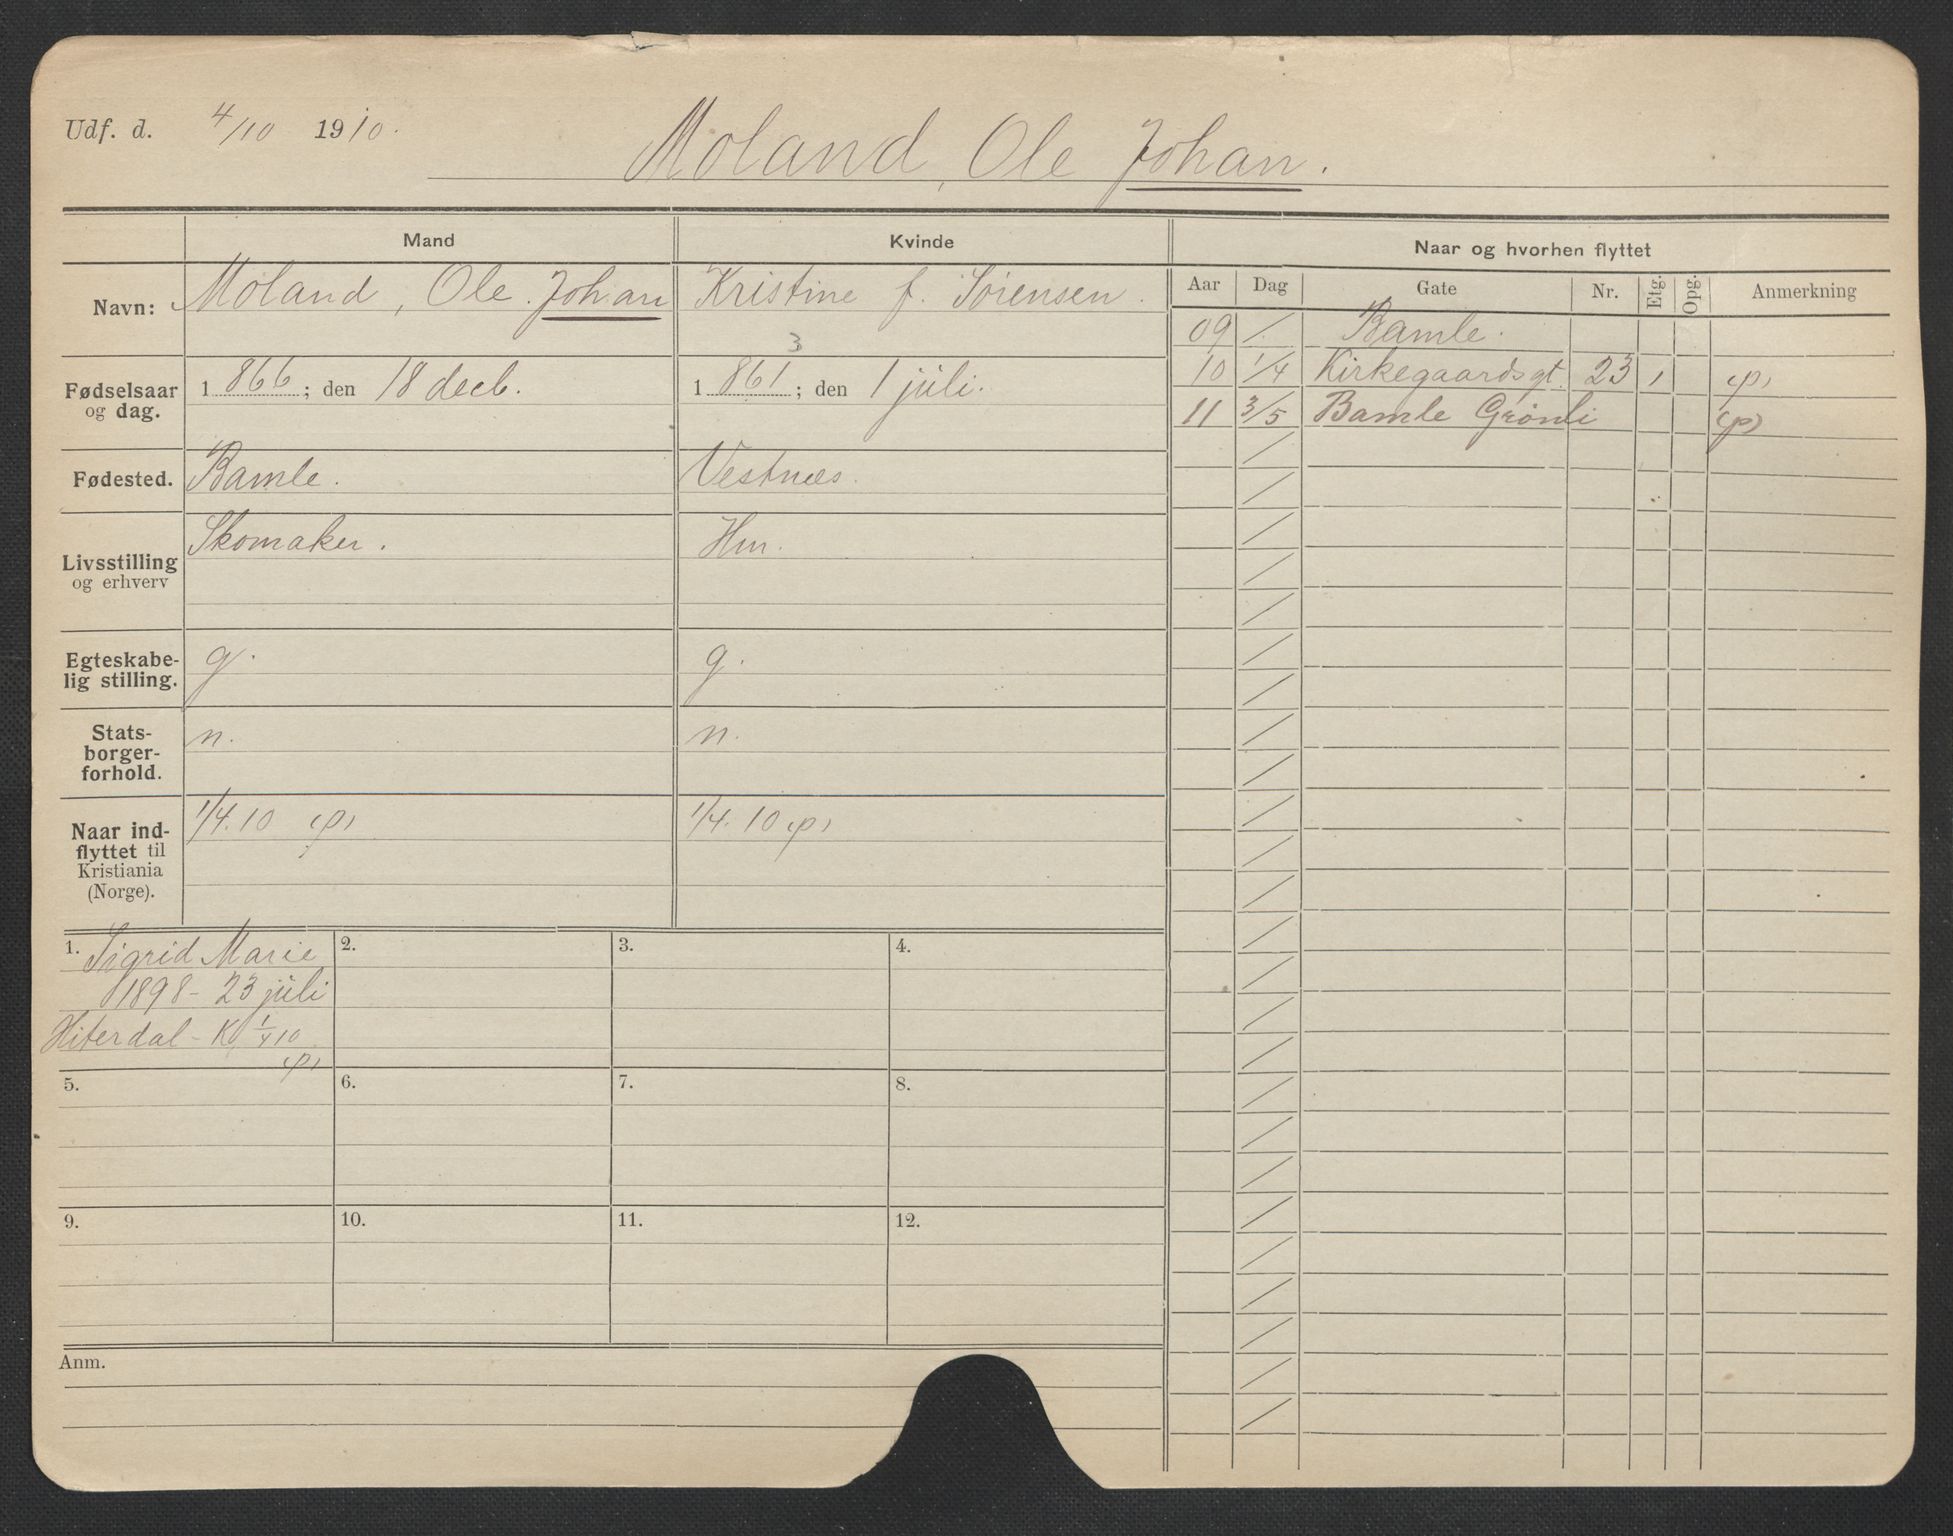 Udf. d. 4/10 1910.
Moland, Ole Johan.
Mand
Kvinde
Navn: Moland, Ole Johan
Kristine f. Sørensen.
3
Fødselsaar og dag. 1866; den 18 decb.
1861; den 1 juli.
Fødested. Bamle.
Vestnæs.
Livsstilling og erhverv Skomaker.
Hm.
Egteskabe-
lig stilling. g.
g.
Stats-
borger-
forhold. n.
n.
Naar ind-
flyttet til
Kristiania
(Norge). 1/4.10 (p)
1/4.10 (p)
1. Sigrid Marie
1898 - 23 juli
Hiterdal - K 1/4 10
(p)
2.
3.
4.
5.
6.
7.
8.
9.
10.
11.
12.
Anm.
Naar og hvorhen flyttet
Aar Dag Gate Nr. Etg. Opg. Anmerkning
09 / Bamle.
10 1/4 Kirkegaardsgt. 23 1 (p)
11 3/5 Bamle Grønli (p)